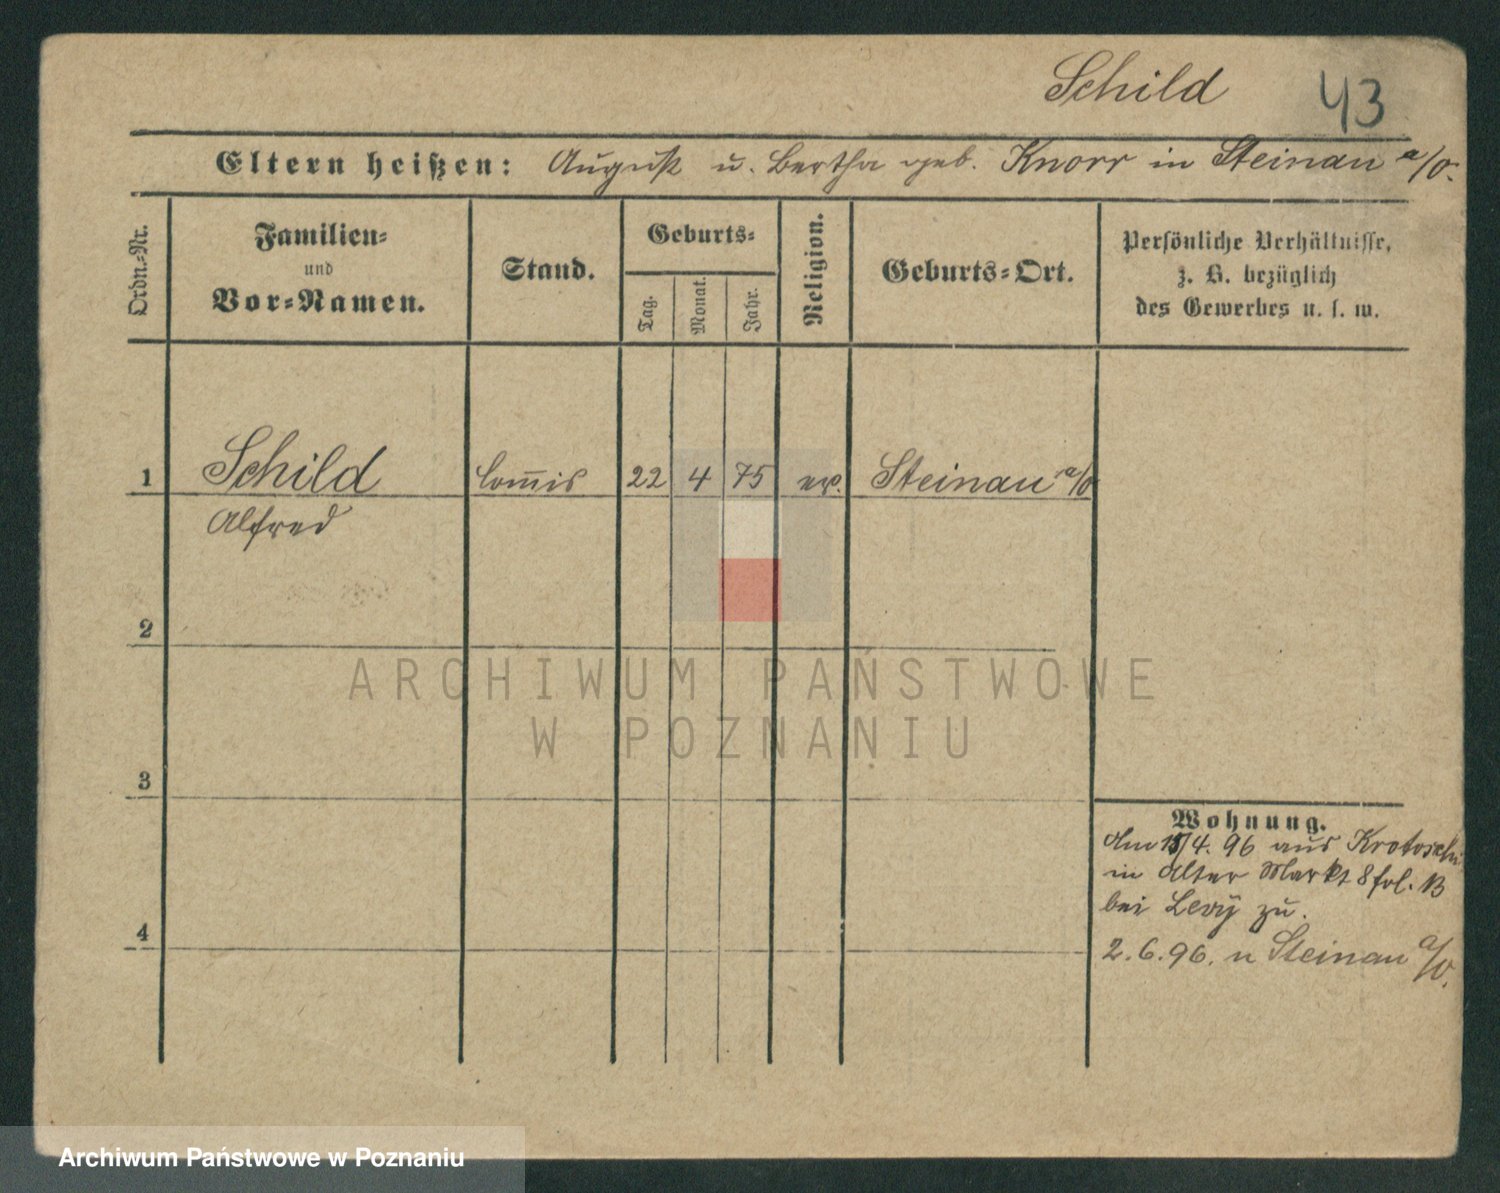 Schild 43
Eltern heißen: August u. Bertha geb. Knorr in Steinau a/O.
Ordn.-Nr.
Familien-
und
Vor-Namen.
Stand.
Geburts-
Tag.
Monat.
Jahr.
Religion.
Geburts-Ort.
Persönliche Verhältnisse,
z. B. bezüglich
des Gewerbes u. s. w.
1 Schild Com̅is 22 4 75 ev. Steinau a/O
Alfred
2
ARCHIWUM PAŃSTWOWE
W POZNANIU
3
Wohnung.
Am 15/4. 96 aus Krotoschin
in Alter Markt 8 fol. 13
bei Levÿ zu.
4
2.6.96. n Steinau a/O.
Archiwum Państwowe w Poznaniu